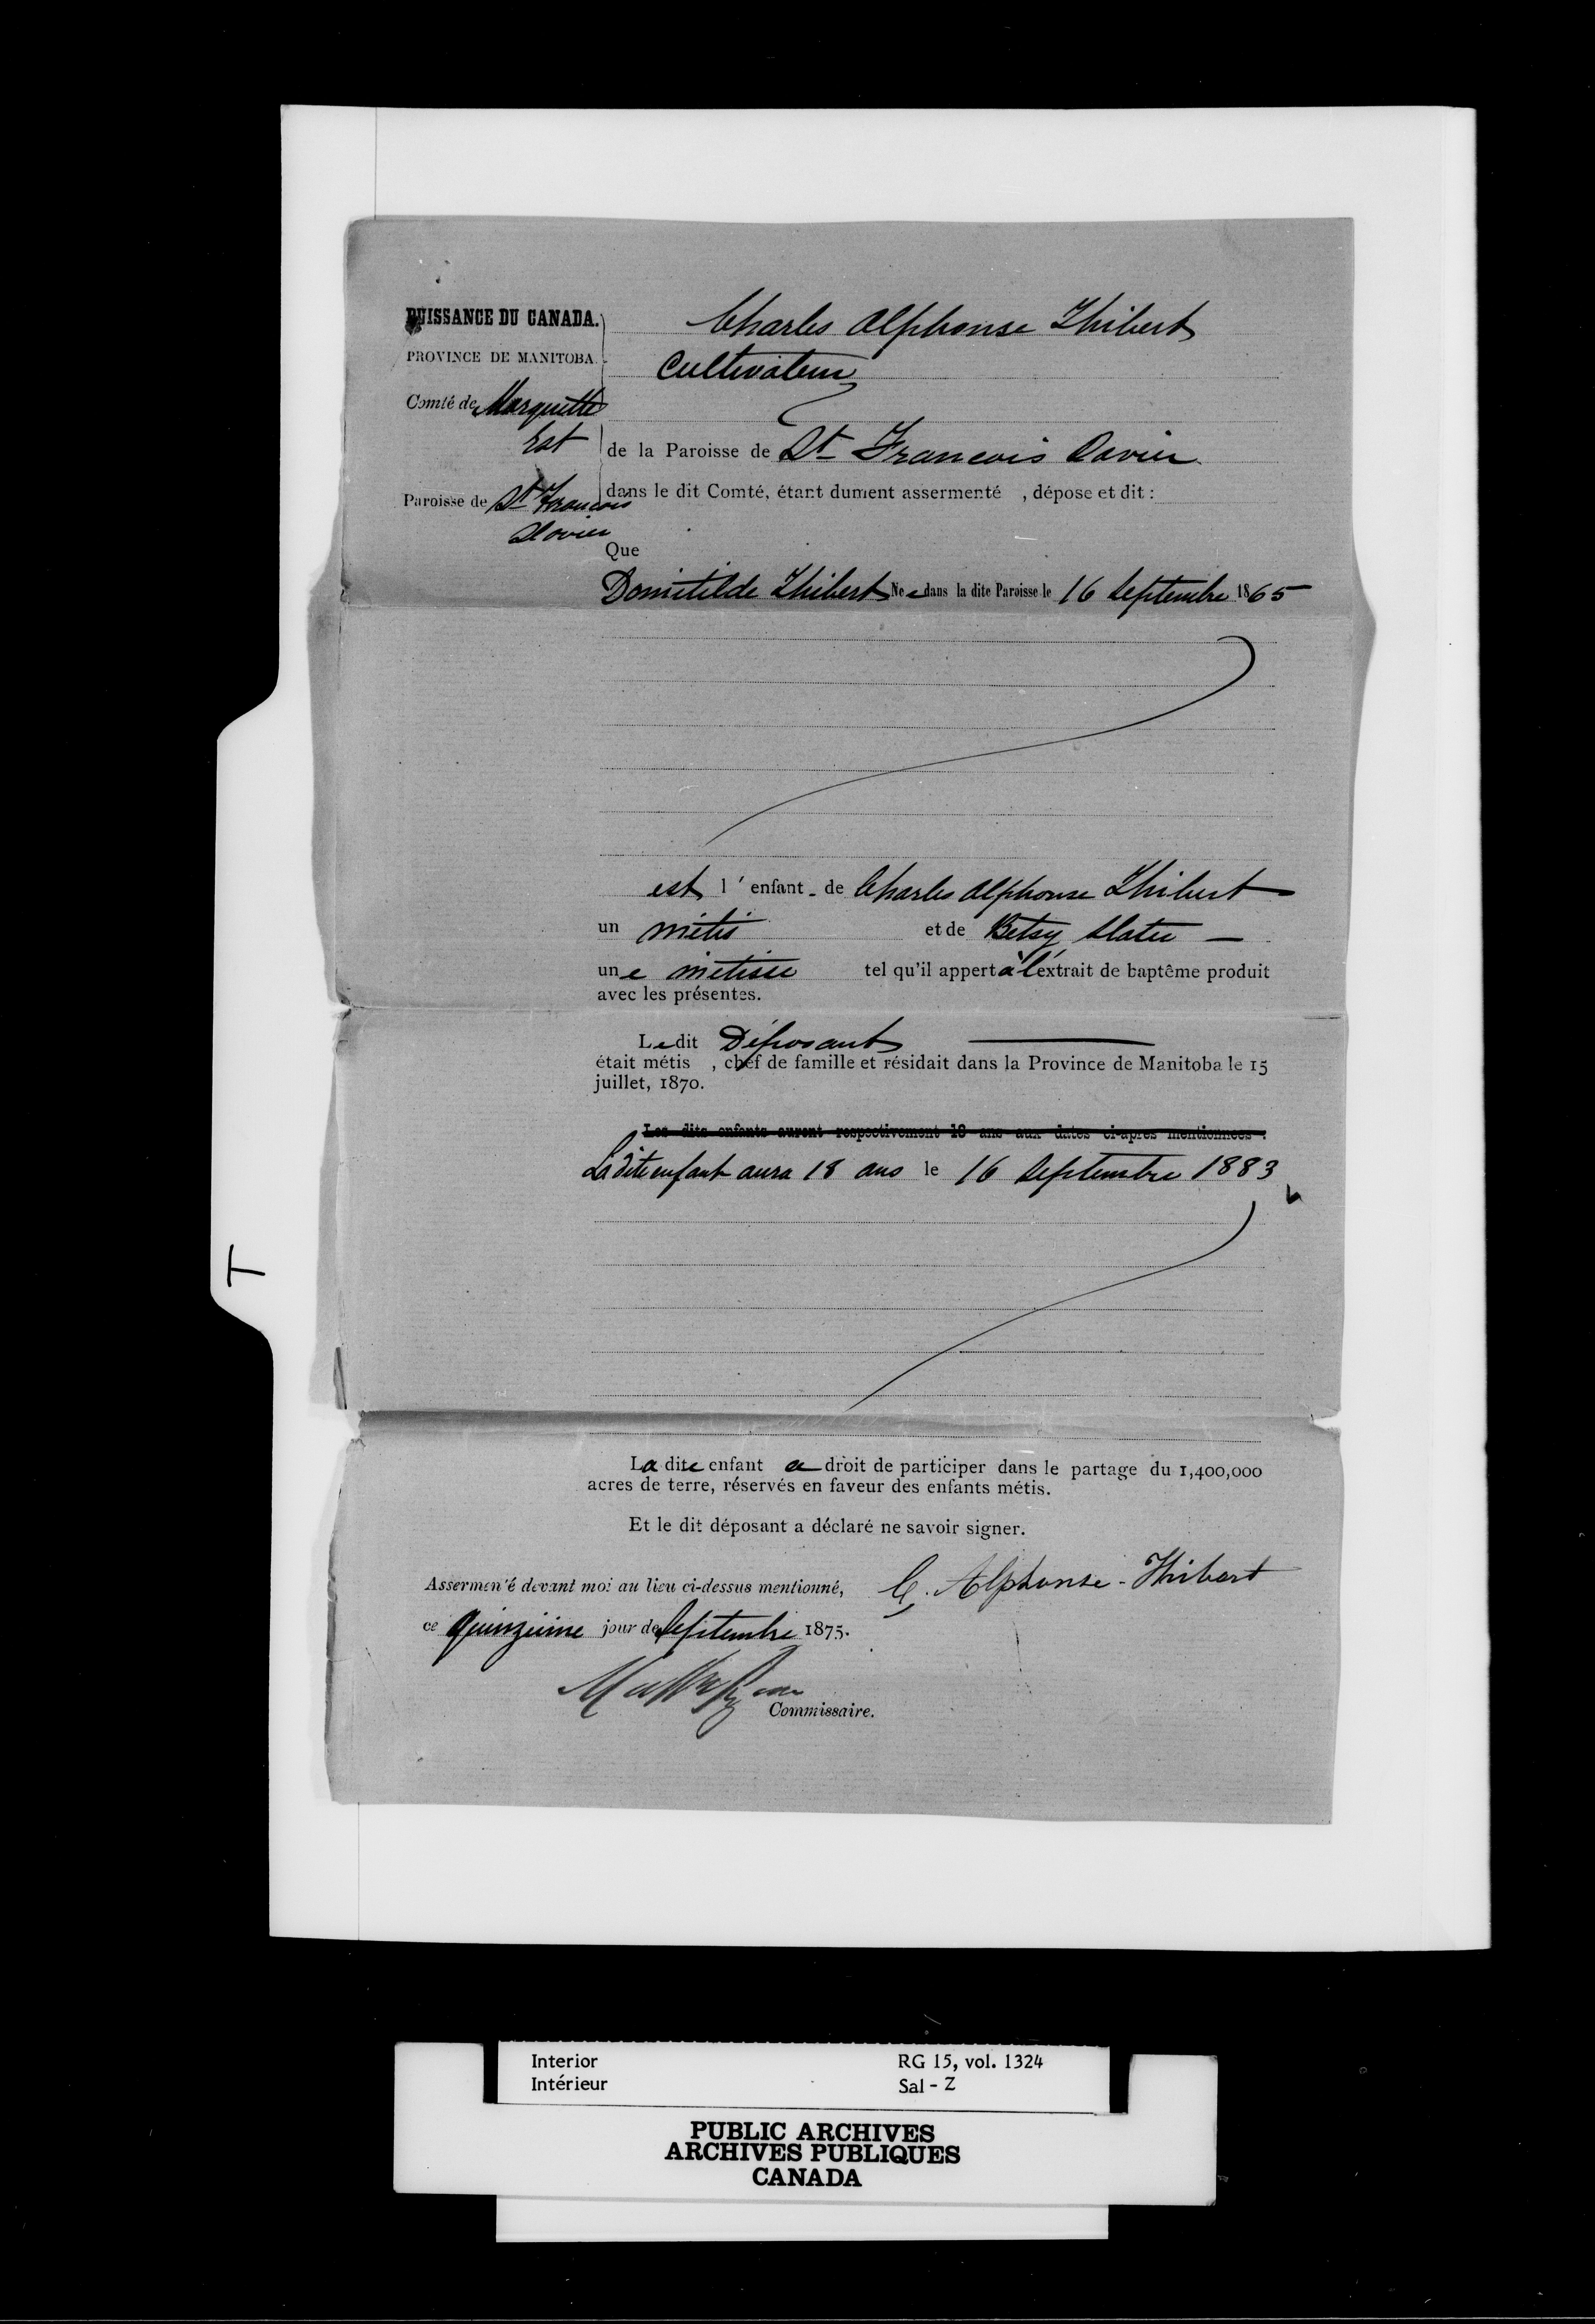 PUISSANCE DU CANADA.
PROVINCE DE MANITOBA.
Comté de Marquette
Est
Paroisse de St François
Xavier
Charles Alphonse Thibert
Cultivateur
de la Paroisse de St François Xavier
dans le dit Comté, étant dument assermenté , dépose et dit :
Que
Domitilde Thibert Née dans la dite Paroisse le 16 Septembre 1865
est l'enfant de Charles Alphonse Thibert
un métis et de Betsy Slater
une métisse tel qu'il appert à l'extrait de baptême produit
avec les présentes.
Le dit Déposant
était métis , chef de famille et résidait dans la Province de Manitoba le 15
juillet, 1870.
Les dits enfants auront respectivement 18 ans aux dates ci-après mentionnées :
La dite enfant aura 18 ans le 16 Septembre 1883
La dite enfant a droit de participer dans le partage du 1,400,000
acres de terre, réservés en faveur des enfants métis.
Et le dit déposant a déclaré ne savoir signer.
Assermenté devant moi au lieu ci-dessus mentionné,
C. Alphonse Thibert
ce quinzième jour de Septembre 1875.
Commissaire.
T
Interior
Intérieur
RG 15, vol. 1324
Sal - Z
PUBLIC ARCHIVES
ARCHIVES PUBLIQUES
CANADA